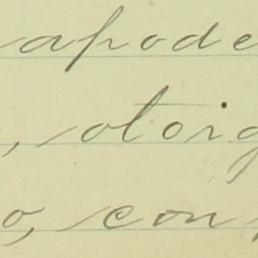 apode
, otorg
o, con